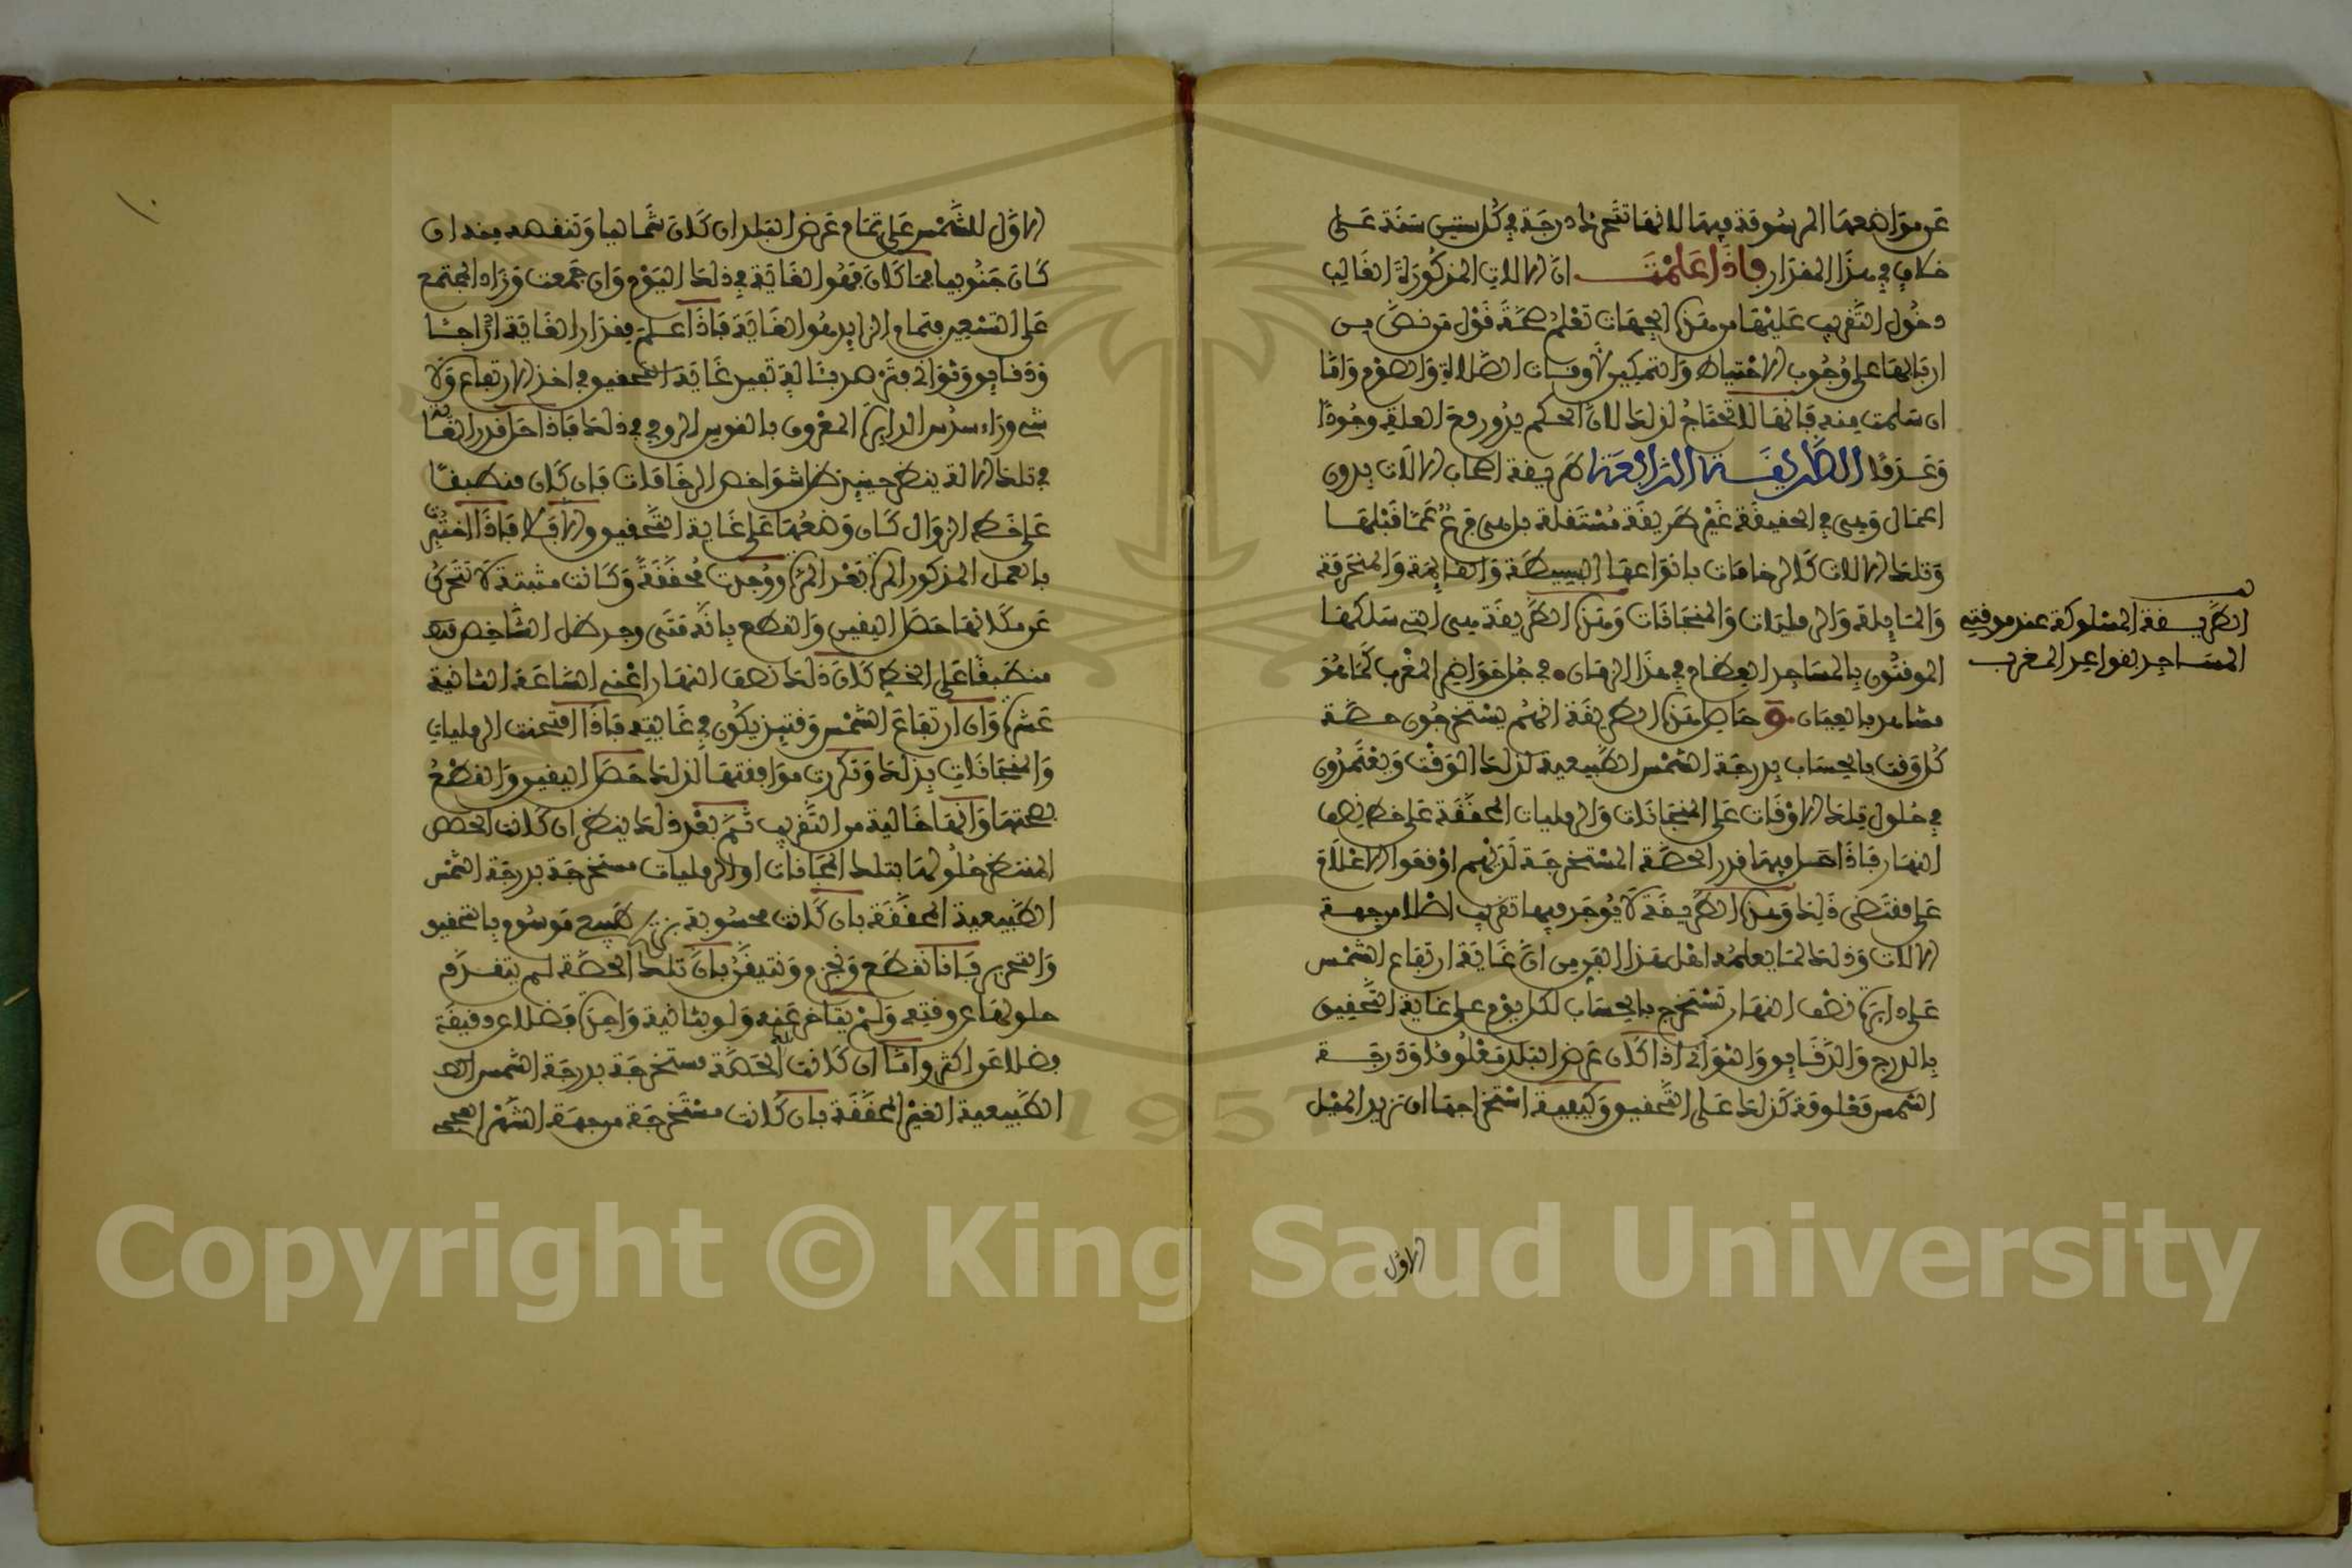 عن مواضعها المرسومة فيها لانها تتحرك درجة في كل ستين سنة على
خلاف في هذا المقدار فاذا علمت ان الالات المذكورة الغالب
دخول التقريب عليها من هذه الجهات تعلم صحة قول من نص من
اربابها على وجوب الاحتياط والتمكين لاوقات الصلاة والصوم واما
ان سلمت منه فانها لا تحتاج لذلك لان الحكم يدور مع العلة وجودا
وعدما الطريقة الرابعة طريقة اصحاب الالات بدون
اعمال وهي في الحقيقة غير طريقة مستقلة بل هي فرع عما قبلها
وتلك الالات كالرخامات بانواعها البسيطة والقائمة والمنحرفة
والمائلة والرمليات والمنجانات وهذه الطريقة هي التي سلكها
الموقتون بالمساجد العظام في هذا الزمان في جل حواضر المغرب كما هو
مشاهد بالعيان وحاصل هذه الطريقة انهم يستخرجون حصة
كل وقت بالحساب بدرجة الشمس الطبيعية لذلك الوقت ويعتمدون
في حلول تلك الاوقات على المنجانات والرمليات المحققة على خط نصف
النهار فاذا حصل فيها قدر الحصة المستخرجة لديهم اوقعوا الاعلام
على مقتضى ذلك وهذه الطريقة لا يوجد فيها تقريب اصلا من جهة
الالات وذلك لما يعلمه اهل هذا الفن من ان غاية ارتفاع الشمس
على دائرة نصف النهار تستخرج بالحساب لكل يوم على غاية التحقيق
بالدرج والدقايق والثواني اذا كان عرض البلد معلوما ودرجة
الشمس معلومة كذلك على التحقيق وكيفية استخراجها ان تزيد الميل
الطريقة المسلوكة عند موقتي
المساجد بقواعد المغرب
الاول
الاول للشمس على تمام عرض البلد ان كان شماليا وتنقصه منه ان
كان جنوبيا فما كان فهو الغاية في ذلك اليوم وان جمعت وزاد المجتمع
على التسعين فتمام الزايد هو الغاية فاذا علم مقدار الغاية ادراجا
ودقايق وثواني فثم هدسالة تفيد غاية التحقيق في اخذ الارتفاع ولا
شيء وراء سدس الدايرة المعروف بالقوس الروحي في ذلك فاذا حل قدر الغاية
في تلك الالة ينظر حينئذ ظل شواخص الرخامات فان كان منطبقا
على خط الزوال كان وضعها على غاية التحقيق والا فلا فاذا اختبرت
بالعمل المذكور المرة بعد المرة ووجدت محققة وكانت مثبتة لا تتحرك
عن مكانها حصل اليقين والقطع بانه متى وجد ظل الشاخص منها
منطبقا على الخط كان ذلك نصف النهار اعني الساعة الثانية
عشرة وان ارتفاع الشمس وقتئذ يكون في غايته فاذا امتحنت الرمليات
والمنجانات بذلك وتكررت موافقتها لذلك حصل اليقين والقطع
بصحتها وانها خالية من التقريب ثم بعد ذلك ينظر ان كانت الحصص
المنتظر حلولها بتلك المنجانات او الرمليات مستخرجة بدرجة الشمس
الطبيعية المحققة بان كانت محسوبة من زيج موسوم بالتحقيق
والتحرير فاننا نقطع ونجزم ونتيقن بان تلك الحصة لم يتقدم
حلولها عن وقته ولم يتاخر عنه ولو بثانية واحدة فضلا عن دقيقة
فضلا عن اكثر واما ان كانت الحصة مستخرجة بدرجة الشمس
الطبيعية الغير المحققة بان كانت مستخرجة من جهة الشهر العجمي
١٠
Copyright © King Saud University
1957